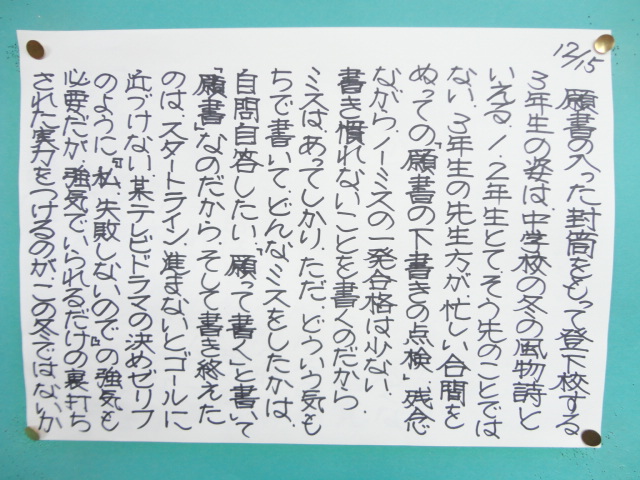 12/15
願書の入った封筒をもって登下校する
3年生の姿は、中学校の冬の風物詩と
いえる。1、2年生とて、そう先のことでは
ない。3年生の先生方が、忙しい合間を
ぬっての「願書の下書きの点検」。残念
ながら、ノーミスの一発合格は少ない。
書き慣れないことを書くのだから、
ミスはあってしかり。ただ、どういう気も
ちで書いて、どんなミスをしたかは、
自問自答したい。「願って書く」と書いて
「願書」なのだから。そして書き終えた
のは、スタートライン。進まないとゴールに
近づけない。某テレビドラマの決めゼリフ
のように、『私、失敗しないので』の強気も
必要だが、強気でいられるだけの裏打ち
された実力をつけるのが、この冬ではないか